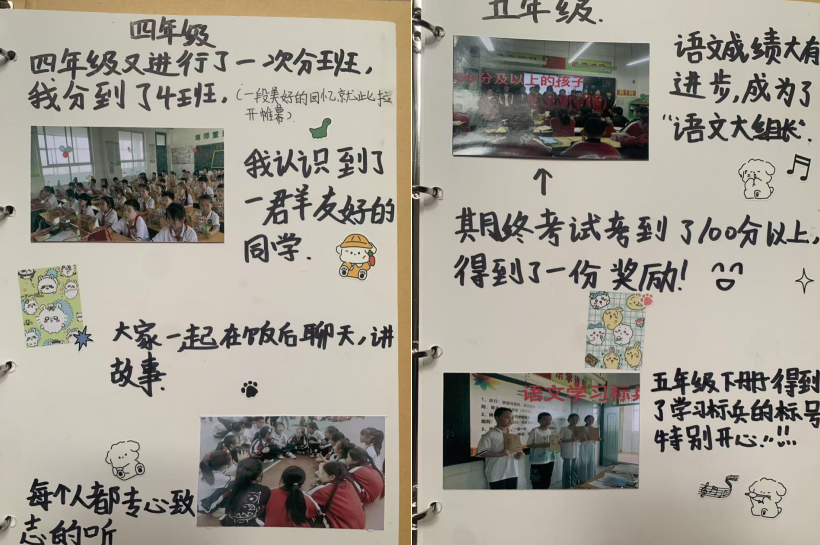 四年级
四年级又进行了一次分班,
我分到了4班.
(一段美好的回忆,就此拉
开帷幕)
我认识到了
一群友好的
同学.
大家一起在饭后聊天,讲
故事.
每个人都专心致
志的听
五年级.
语文成绩大有
进步,成为了
"语文大组长".
分及以上的孩子
期终考试考到了100分以上,
得到了一份奖励!
语文学习标兵
五年级下册得到
了学习标兵的标号
特别开心..!!!